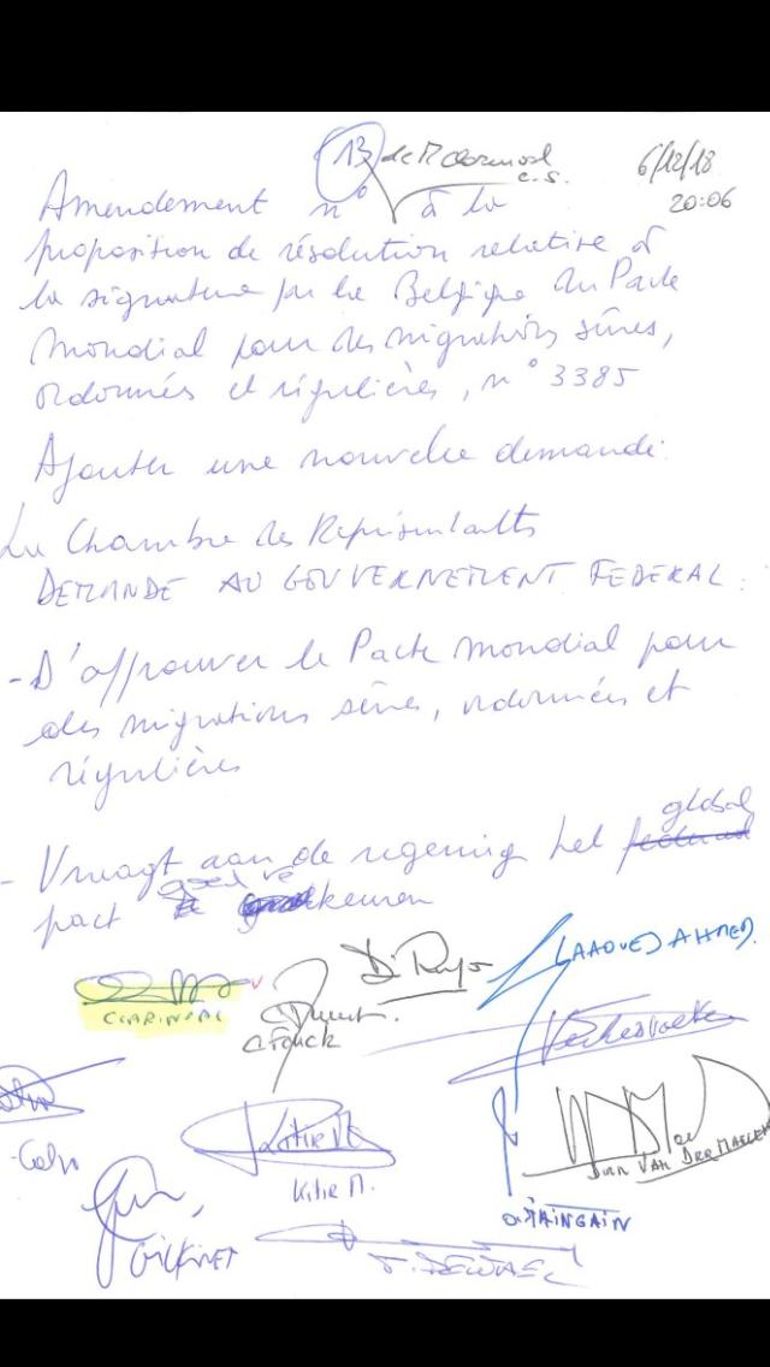 13 de M Clarinval
c.s.
6/12/18
20:06
Amendement n° à la
proposition de résolution relative à
la signature par la Belgique du Pacte
Mondial pour des migrations sûres,
ordonnés et régulières, n° 3385
Ajouter une nouvelle demande:
La Chambre des Représentants
DEMANDE AU GOUVERNEMENT FEDERAL :
- D'approuver le Pacte mondial pour
des migrations sûres, ordonnées et
régulières
global
- Vraagt aan de regering het
goed te
pact keuren
LAAOUEJ AHMED.
CLARINVAL
C Fonck
Kitir M.
DIRK VAN DER MAELEN
O. MAINGAIN
GILKINET